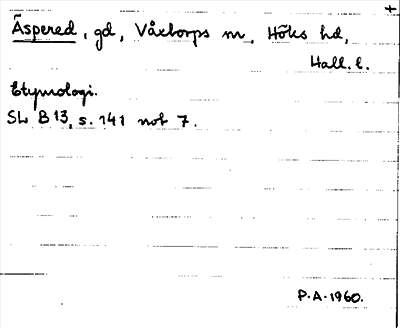 +
Äspered, gd, Våxtorps sn, Höks hd,
Hall. l.
Etymologi.
SL B 13, s. 141 not 7.
P.A. 1960.